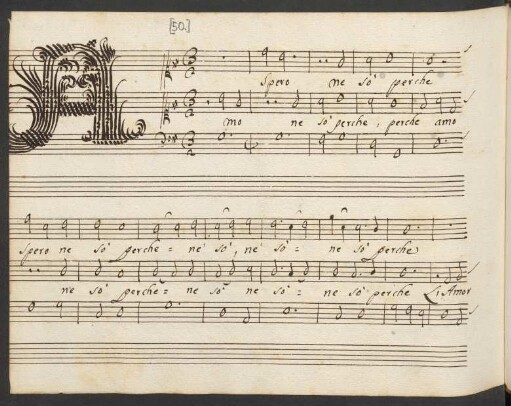 [50.]
A
Spero ne sò perche
mo ne sò perche, perche amo
spero ne sò perche = ne sò, ne sò = ne sò perche
ne sò perche = ne sò ne sò = ne sò perche Li Amor